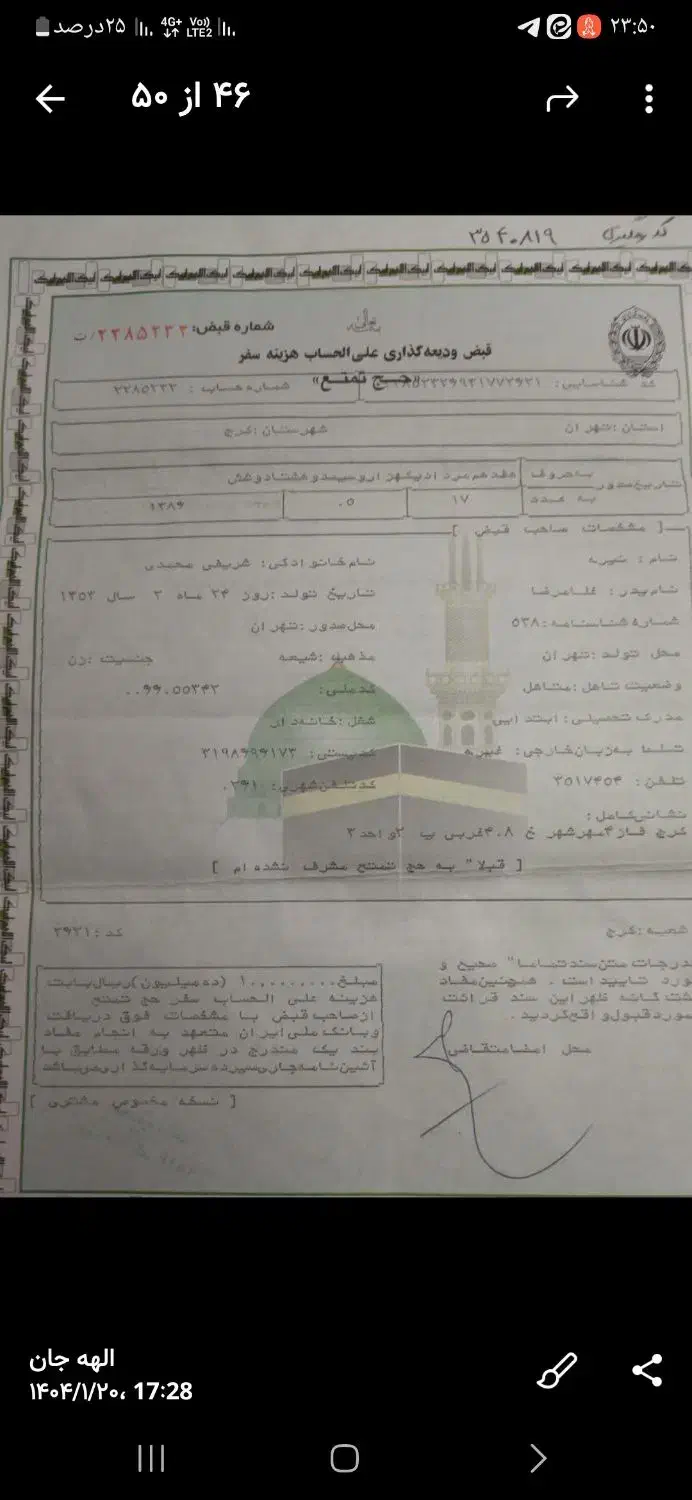 ۲۵درصد 4G+ Vo)) LTE2 ۲۳:۵۰
۴۶ از ۵۰
کد رهگیری ۳۵۴۰۸۱۹
بسمه تعالی
شماره قبض: ۲۲۸۵۲۳۲/ت
قبض ودیعه گذاری علی الحساب هزینه سفر
«حج تمتع»
کد شناسایی: شماره حساب: ۲۲۸۵۲۳۲
استان: تهران شهرستان: کرج
تاریخ صدور به حروف هفدهم مرداد یکهزار و سیصد و هشتاد و شش
به عدد ۱۷ ۰۵ ۱۳۸۶
[ مشخصات صاحب قبض ]
نام: نیره نام خانوادگی: شریفی محمدی
نام پدر: غلامرضا تاریخ تولد: روز ۲۴ ماه ۲ سال ۱۳۵۲
شماره شناسنامه: ۵۳۸ محل صدور: تهران
محل تولد: تهران مذهب: شیعه جنسیت: زن
وضعیت تاهل: متاهل کد ملی:
مدرک تحصیلی: ابتدایی شغل: خانه دار
تسلط به زبان خارجی: غیره کد پستی: ۳۱۹۸۶۹۶۱۷۳
تلفن: ۳۵۱۷۴۵۴ کد تلفن شهری: ۰۲۶۱
نشانی کامل:
کرج فاز ۴ مهرشهر خ ۴۰۸ غربی پ ۲ واحد ۳
[ قبلا" به حج تمتع مشرف نشده ام ]
شعبه: کرج کد: ۲۹۲۱
مندرجات متن سند تماما" صحیح و
مورد تایید است. همچنین مفاد
هشت گانه ظهر این سند قرائت
مورد قبول واقع گردید.
محل امضاء متقاضی
مبلغ ۱۰,۰۰۰,۰۰۰ (ده میلیون) ریال بابت
هزینه علی الحساب سفر حج تمتع
از صاحب قبض با مشخصات فوق دریافت
و بانک ملی ایران متعهد به انجام مفاد
بند یک مندرج در ظهر ورقه مطابق با
آئین نامه جاری سپرده سرمایه گذاری میباشد
[ نسخه مخصوص مشتری ]
الهه جان
۱۴۰۴/۱/۲۰، 17:28